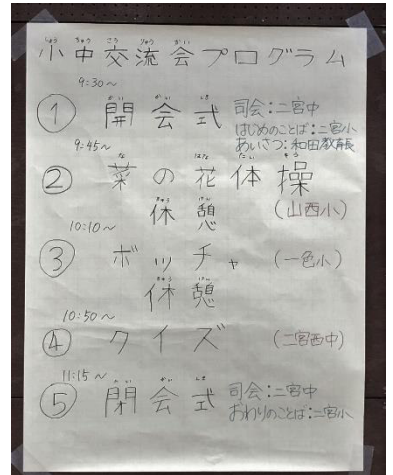 小中交流会プログラム
9:30～
① 開会式 司会：二宮中
はじめのことば：二宮小
あいさつ：和田教育長
9:45～
② 菜の花体操
休憩 (山西小)
10:10～
③ ボッチャ (一色小)
休憩
10:50～
④ クイズ (二宮西中)
11:15～
⑤ 閉会式 司会：二宮中
おわりのことば：二宮小